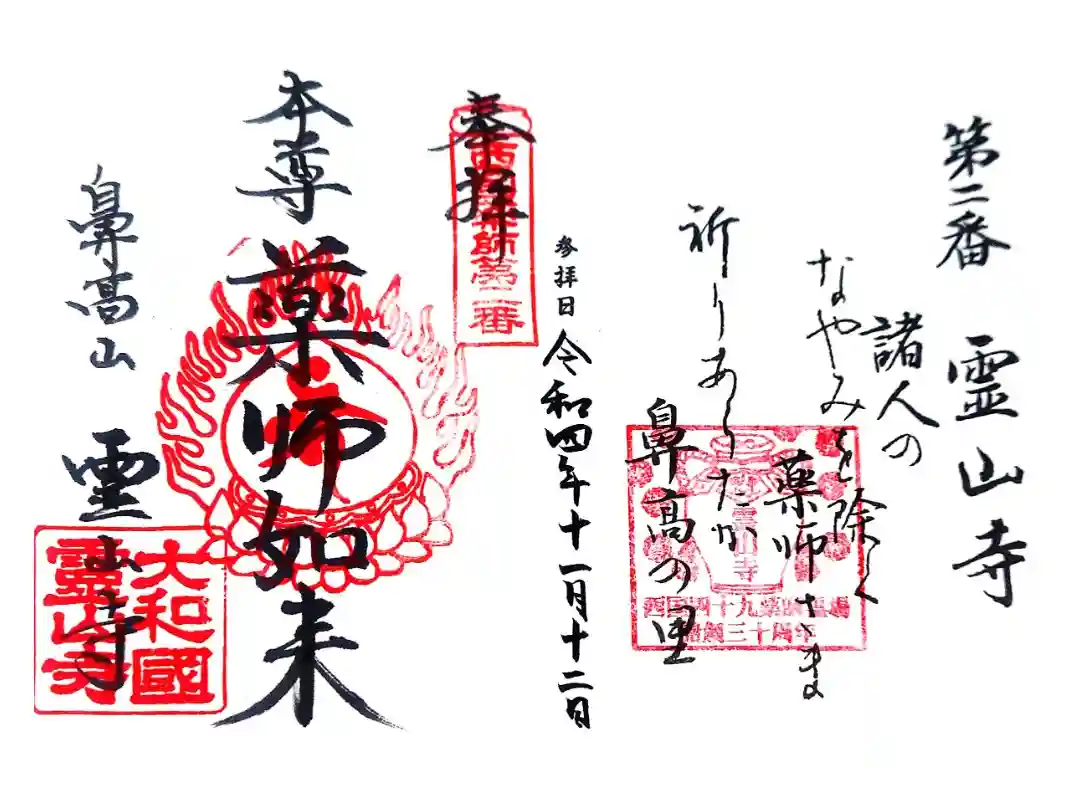 第二番 霊山寺
諸人の
なやみを除く
薬師さま
祈りあらたか
鼻高の里
西国四十九薬師霊場
開創三十周年
参拝日 令和四年十一月十二日
奉拝
西国薬師第二番
本尊 薬師如来
鼻高山 霊山寺
大和國
霊山寺